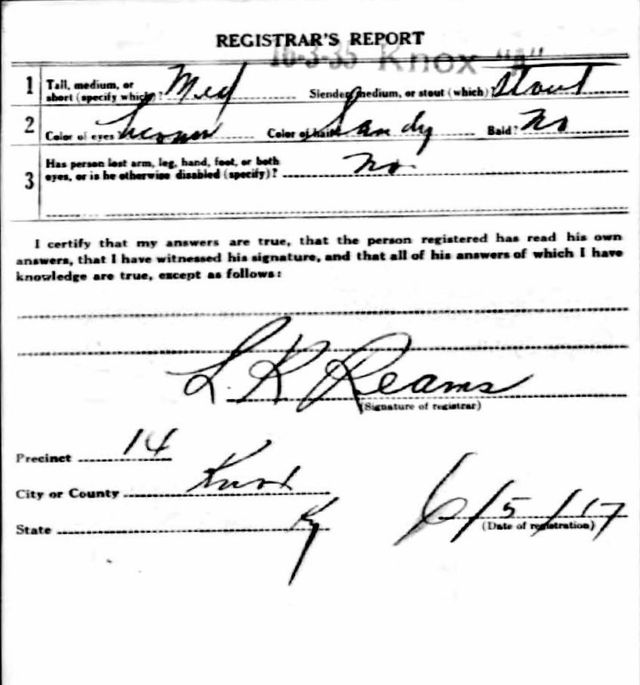 REGISTRAR'S REPORT
16-3-35 Knox "A"
1 Tall, medium, or short (specify which)? Med Slender, medium, or stout (which) Stout
2 Color of eyes Color of hair Sandy Bald? No
3 Has person lost arm, leg, hand, foot, or both
eyes, or is he otherwise disabled (specify)? No
I certify that my answers are true, that the person registered has read his own
answers, that I have witnessed his signature, and that all of his answers of which I have
knowledge are true, except as follows:
L. K Reams
(Signature of registrar)
Precinct 14
City or County Knox
State Ky
6/5/17
(Date of registration)